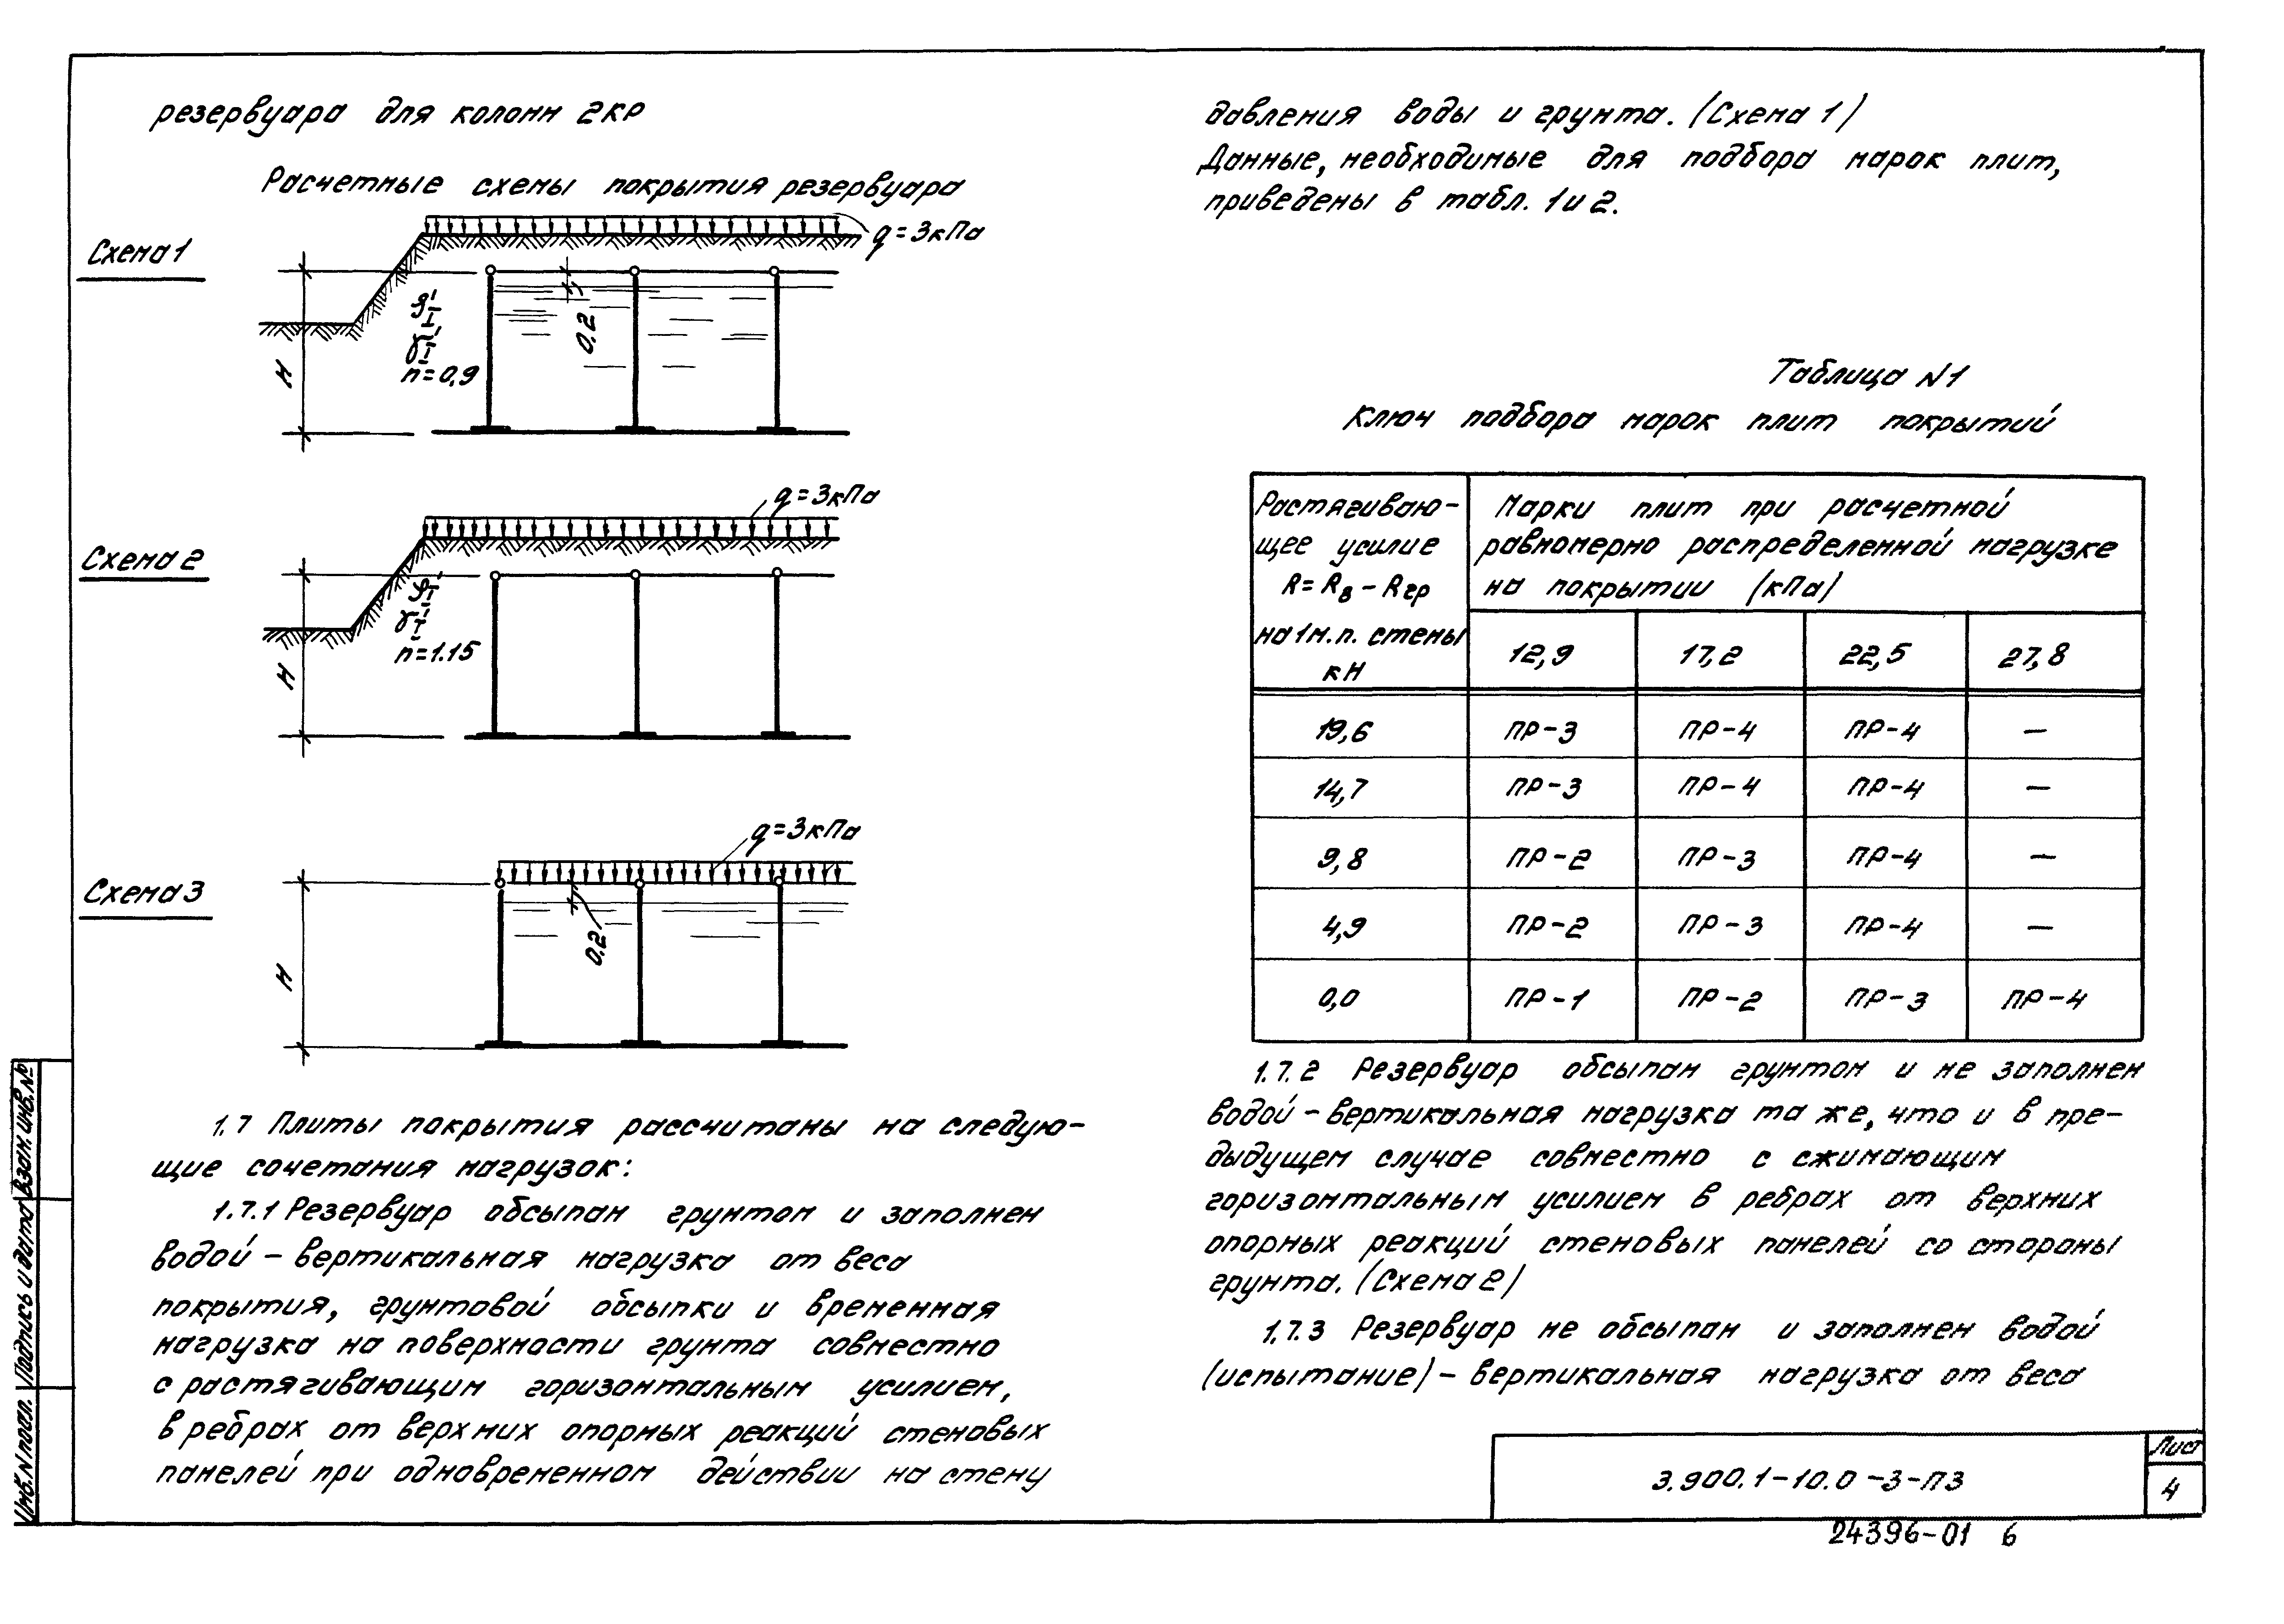 резервуара для колонн 2КР
Расчетные схемы покрытия резервуара
Схема 1
q=3кПа
0,2
φ'I
γ'I
n=0,9
H
Схема 2
q=3кПа
φ'I
γ'I
n=1.15
H
Схема 3
q=3кПа
0.2
H
1.7 Плиты покрытия рассчитаны на следую-
щие сочетания нагрузок:
1.7.1 Резервуар обсыпан грунтом и заполнен
водой – вертикальная нагрузка от веса
покрытия, грунтовой обсыпки и временная
нагрузка на поверхности грунта совместно
с растягивающим горизонтальным усилием,
в ребрах от верхних опорных реакций стеновых
панелей при одновременном действии на стену
давления воды и грунта. (Схема 1)
Данные, необходимые для подбора марок плит,
приведены в табл. 1 и 2.
Таблица N1
Ключ подбора марок плит покрытий
Растягиваю-
щее усилие
R=Rв – Rгр
на 1м.п. стены
кН
Марки плит при расчетной
равномерно распределенной нагрузке
на покрытии (кПа)
12,9 17,2 22,5 27,8
19,6 ПР-3 ПР-4 ПР-4 —
14,7 ПР-3 ПР-4 ПР-4 —
9,8 ПР-2 ПР-3 ПР-4 —
4,9 ПР-2 ПР-3 ПР-4 —
0,0 ПР-1 ПР-2 ПР-3 ПР-4
1.7.2 Резервуар обсыпан грунтом и не заполнен
водой – вертикальная нагрузка та же, что и в пре-
дыдущем случае совместно с сжимающим
горизонтальным усилием в ребрах от верхних
опорных реакций стеновых панелей со стороны
грунта. (Схема 2)
1.7.3 Резервуар не обсыпан и заполнен водой
(испытание) – вертикальная нагрузка от веса
3.900.1-10.0-3-ПЗ
Лист
4
24396-01 6
Взам. инв. №
Подпись и дата
Инв. N подл.